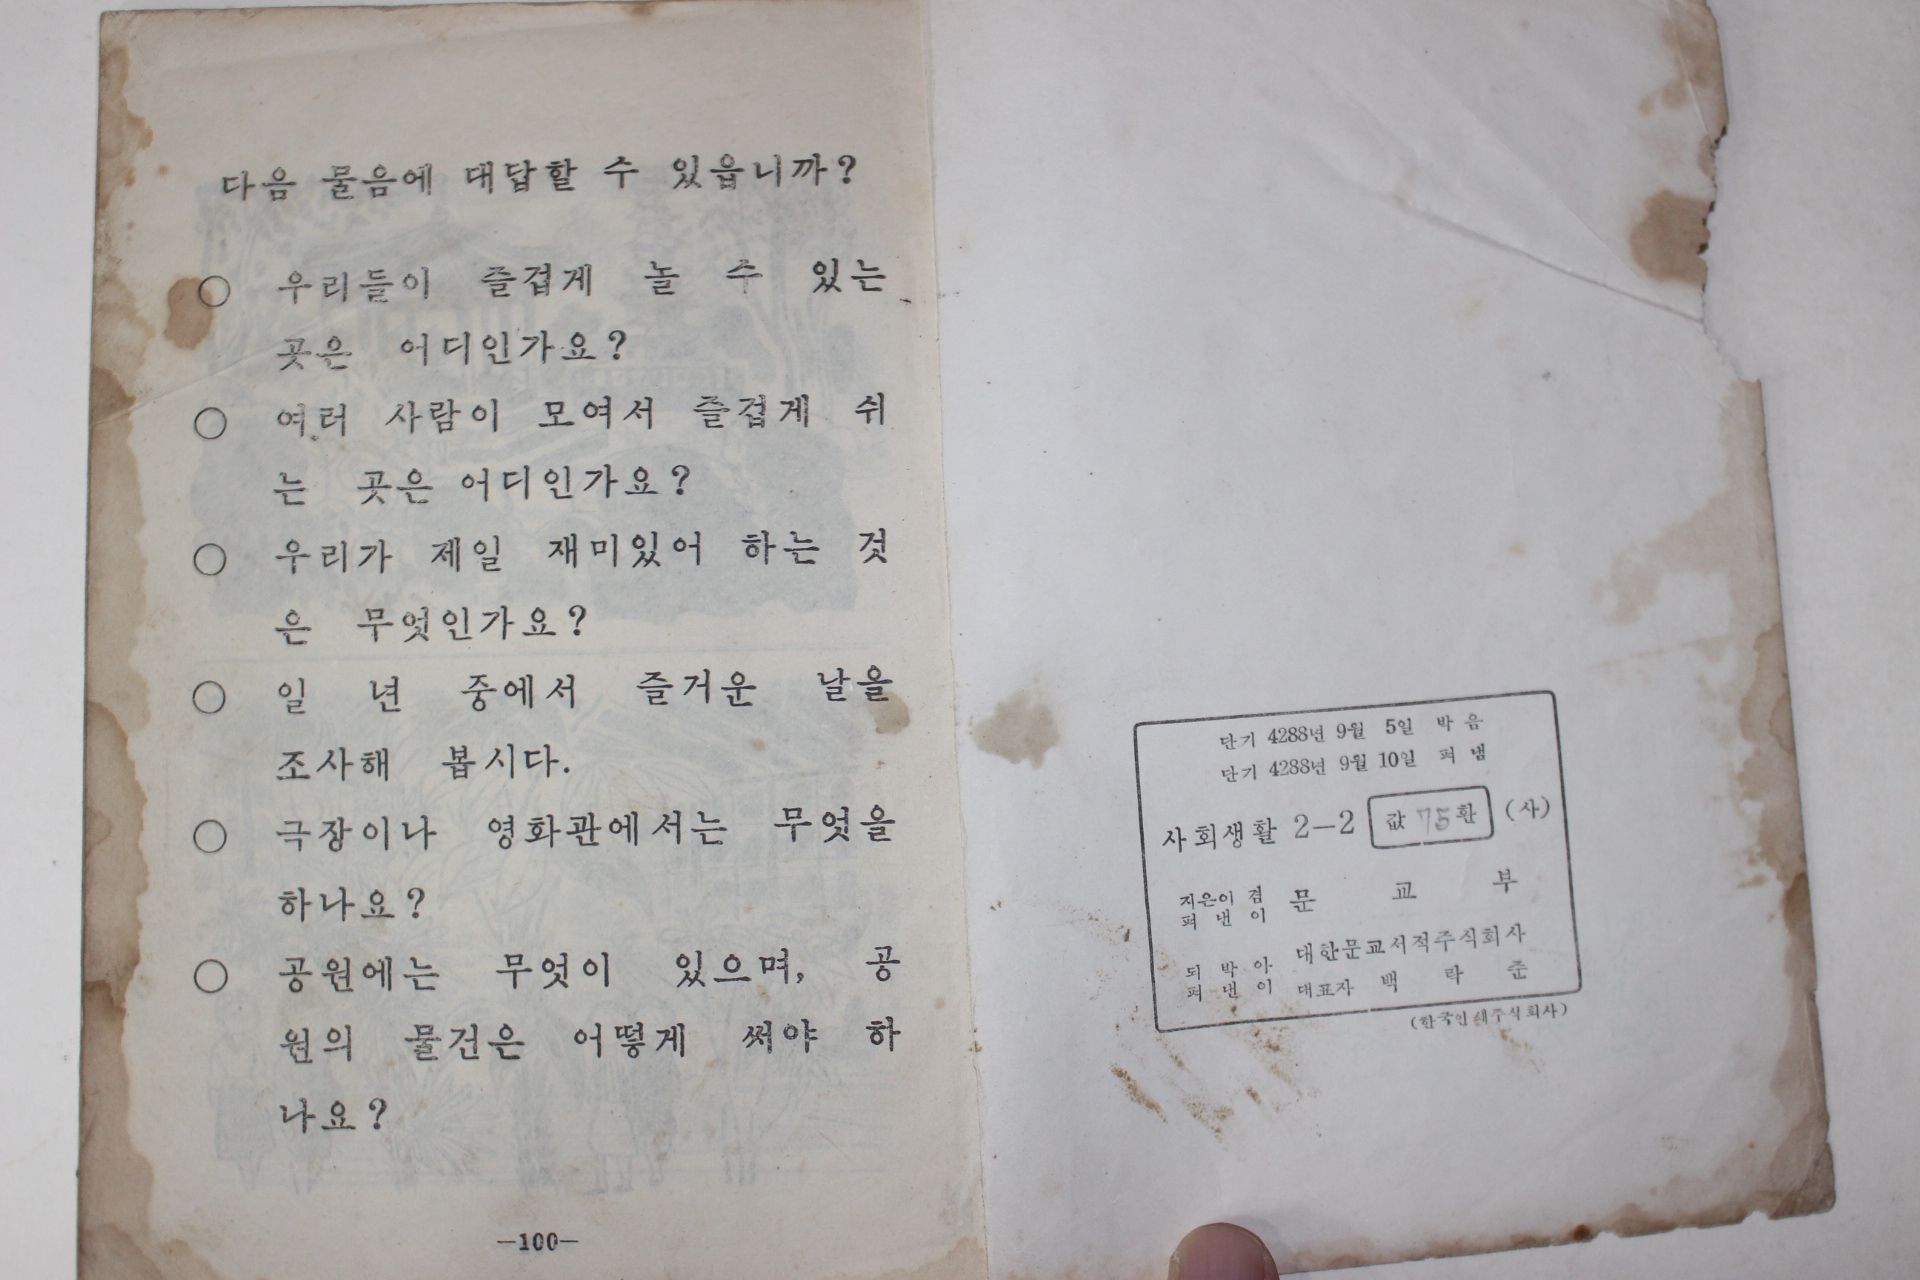 다음 물음에 대답할 수 있읍니까?
○ 우리들이 즐겁게 놀 수 있는
곳은 어디인가요?
○ 여러 사람이 모여서 즐겁게 쉬
는 곳은 어디인가요?
○ 우리가 제일 재미있어 하는 것
은 무엇인가요?
○ 일 년 중에서 즐거운 날을
조사해 봅시다.
○ 극장이나 영화관에서는 무엇을
하나요?
○ 공원에는 무엇이 있으며, 공
원의 물건은 어떻게 써야 하
나요?
—100—
단기 4288년 9월 5일 박음
단기 4288년 9월 10일 펴냄
사회생활 2—2 값 75환 (사)
지은이 겸
펴낸이 문교부
되박아
펴낸이
대한문교서적주식회사
대표자 백락준
(한국인쇄주식회사)